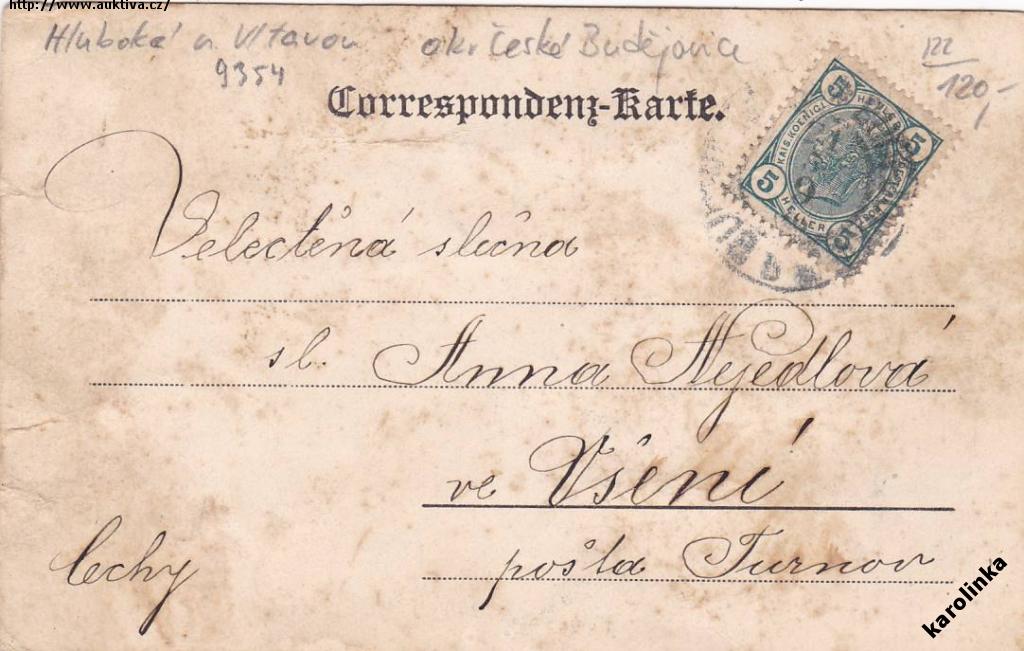 http://www.auktiva.cz/
Hluboká n Vltavou okr České Budějovice
9354
122
120,-
Correspondenz-Karte.
5 5 5 5
KAIS. KOENIGL.
HELLER HELLER
Velectěná slečna
sl. Anna Nejedlová
ve Všení
Čechy
pošta Turnov
karolinka